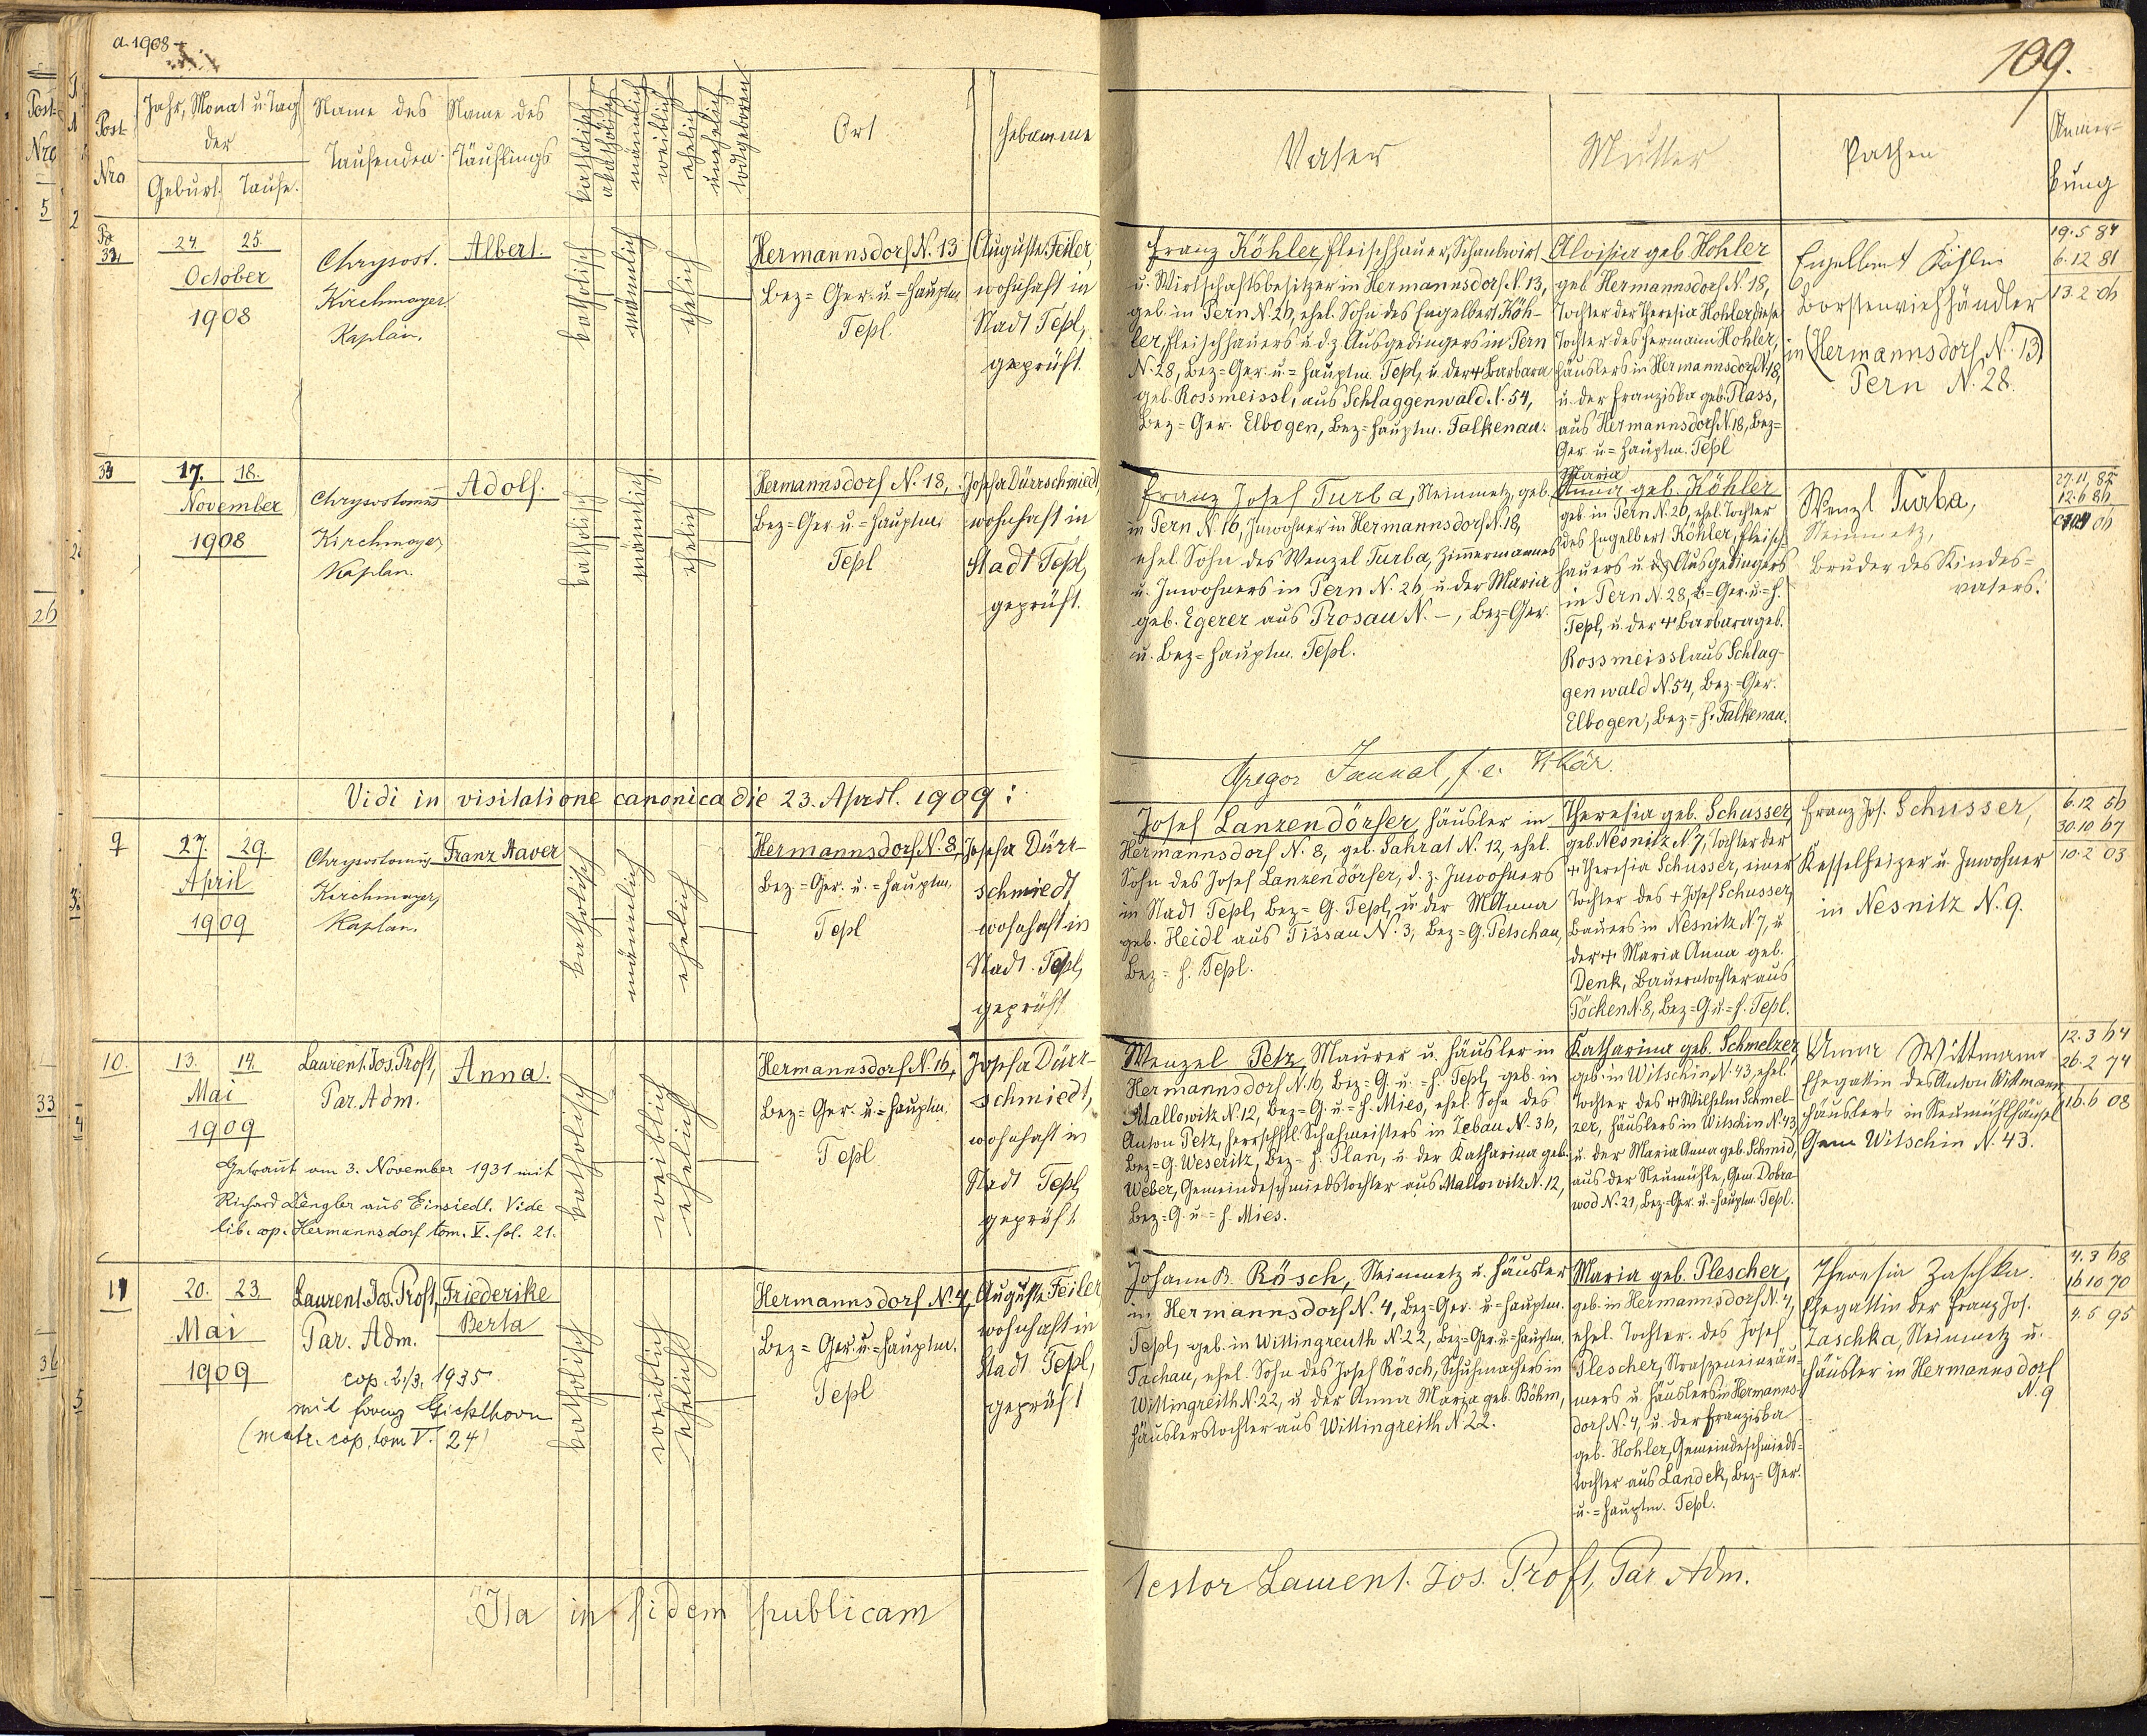 a. 1908
109.
Post-
Nro
Jahr, Monat u. Tag
der
Geburt. Taufe.
Name des
Taufenden.
Name des
Täuflings
katholisch
akatholisch
männlich
weiblich
ehelich
unehelich
todtgeboren
Ort
Hebamme
Vater
Mutter
Pathen
Anmer-
kung
32.
24. 25.
October
1908
Chrysost.
Kirchmayer
Kaplan.
Albert.
katholisch
männlich
ehelich
Hermannsdorf N. 13
Bez = Ger. u. = Hauptm.
Tepl.
Auguste Feiler,
wohnhaft in
Stadt Tepl,
geprüft.
Franz Köhler, Fleischhauer, Schankwirt
u. Wirtschaftsbesitzer in Hermannsdorf N. 13,
geb. in Pern N. 26, ehel. Sohn des Engelbert Köh-
ler, Fleischhauers u. d. z. Ausgedingers in Pern
N. 28, Bez = Ger. u. = Hauptm. Tepl, u. der + Barbara
geb. Rossmeissl, aus Schlaggenwald N. 54,
Bez = Ger. Elbogen, Bez = Hauptm. Falkenau.
Aloisia geb. Hohler
geb. Hermannsdorf N. 18,
Tochter der Theresia Hohler, diese
Tochter des Hermann Hohler,
Häuslers in Hermannsdorf N. 18,
u. der Franziska geb. Plass,
aus Hermannsdorf N. 18, Bez =
Ger. u. = Hauptm. Tepl
Engelbert Köhler
Borstenviehhändler
in (Hermannsdorf N. 13)
Pern N. 28.
19. 5 84
6. 12 81
13. 2 06
33
17. 18.
November
1908
Chrysostomus
Kirchmayer
Kaplan.
Adolf.
katholisch
männlich
ehelich
Hermannsdorf N. 18,
Bez = Ger. u. = Hauptm.
Tepl
Josefa Dürrschmiedt,
wohnhaft in
Stadt Tepl,
geprüft.
Franz Josef Turba, Steinmetz, geb.
in Pern N. 16, Inwohner in Hermannsdorf N. 18,
ehel. Sohn des Wenzel Turba, Zimmermannes
u. Inwohners in Pern N. 26, u. der Maria
geb. Egerer aus Prosau N. –, Bez = Ger.
u. Bez = Hauptm. Tepl.
Maria
Anna geb. Köhler
geb. in Pern N. 26, ehel. Tochter
des Engelbert Köhler, Fleisch-
hauers u. d. z. Ausgedingers
in Pern N. 28, B = Ger. u. = H.
Tepl, u. der + Barbara geb.
Rossmeissl aus Schlag-
genwald N. 54, Bez. = Ger.
Elbogen, Bez. = H. Falkenau.
Wenzl Turba,
Steinmetz,
Bruder des Kindes-
vaters.
12. 6 86
Vidi in visitatione canonica die 23. April. 1909:
Gregor
9
27. 29.
April
1909
Chrysostomus
Kirchmayer,
Kaplan.
Franz Xaver
katholisch
männlich
ehelich
Hermannsdorf N. 8,
Bez. = Ger. u. = Hauptm.
Tepl
Josefa Dürr-
schmiedt,
wohnhaft in
Stadt Tepl,
geprüft
Josef Lanzendörfer, Häusler in
Hermannsdorf N. 8, geb. Sahrat N. 12, ehel.
Sohn des Josef Lanzendörfer, d. z. Inwohners
in Stadt Tepl, Bez = G. Tepl, u. der M Anna
geb. Heidl aus Tissau N. 3, Bez = G. Petschau,
Bez = H. Tepl.
Theresia geb. Schusser,
geb. Nesnitz N 7, Tochter der
+ Theresia Schusser, einer
Tochter des + Josef Schusser,
Bauers in Nesnitz N 7, u.
der + Maria Anna geb.
Denk, Bauerntochter aus
Pöcken N. 8, Bez = G. u. = H. Tepl.
Franz Jos. Schusser,
Kesselheizer u. Inwohner
in Nesnitz N. 9.
6. 12 56
30. 10 67
10. 2 03
10.
13. 14.
Mai
1909
Laurent. Jos. Proft,
Par. Adm.
Anna.
Getraut am 3. November 1931 mit
Richard Lengler aus Einsiedl. Vide
lib. cop. Hermannsdorf tom. V. fol. 21.
katholisch
weiblich
ehelich
Hermannsdorf N. 16,
Bez = Ger. u. = Hauptm.
Tepl
Josefa Dürr-
schmiedt,
wohnhaft in
Stadt Tepl,
geprüft
Wenzel Petz, Maurer u. Häusler in
Hermannsdorf N. 16, Bez = G. u. = H. Tepl, geb. in
Mallowitz N. 12, Bez = G. u. = H. Mies, ehel. Sohn des
Anton Petz, herrschftl. Schafmeisters in Zebau N. 36,
Bez = G. Weseritz, Bez = H. Plan, u. der Katharina geb.
Weber, Gemeindeschmiedstochter aus Mallowitz N. 12,
Bez = G. u. = H. Mies.
Katharina geb. Schmelzer
geb. in Witschin N. 43, ehel.
Tochter des + Wilhelm Schmel-
zer, Häuslers in Witschin N. 43,
u. der Maria Anna geb. Schmid,
aus der Neumühle, Gem. Dobra-
wod N. 21, Bez = Ger. u. = Hauptm. Tepl.
Anna Wittmann
Ehegattin des Anton Wittmann
Häuslers in Neumühlhäusel
Gem Witschin N. 43.
12. 3 64
26. 2 74
16. 6 08
11
20. 23.
Mai
1909
Laurent. Jos. Proft,
Par. Adm.
Friederike
Berta
cop. 2/3. 1935
mit Gicklhorn
(matr. cop. tom V. 24)
katholisch
weiblich
ehelich
Hermannsdorf N. 4,
Bez = Ger. u. = Hauptm.
Tepl
Auguste Feiler
wohnhaft in
Stadt Tepl,
geprüft
Johann B. Rösch, Steinmetz u. Häusler
in Hermannsdorf N. 4, Bez = Ger. u. = Hauptm.
Tepl, geb. in Wittingreuth N. 22, Bez = Ger. u. = Hauptm.
Tachau, ehel. Sohn des Josef Rösch, Schuhmachers in
Wittingreith N. 22, u. der Anna Maria geb. Böhm,
Häuslerstochter aus Wittingreith N. 22.
Maria geb. Plescher,
geb. in Hermannsdorf N. 4,
ehel. Tochter des Josef
Plescher, Straszeneinräu-
mers u. Häuslers in Hermanns-
dorf N. 4, u. der Franziska
geb. Hohler, Gemeindeschmieds-
tochter aus Landek, Bez = Ger.
u. = Hauptm. Tepl.
Theresia Zaschka.
Ehegattin der Franz Jos.
Zaschka, Steinmetz u.
Häusler in Hermannsdorf
N. 9
4. 3 68
16 10 70
4. 5 95
Ita in fidem publicam
testor Laurent. Jos. Proft, Par. Adm.